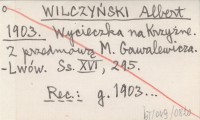 WILCZYŃSKI Albert
1903. Wycieczka na Krzyżne.
Z przedmową M. Gawalewicza.
-Lwów. Ss. XVI, 295.
Rec.: g. 1903...